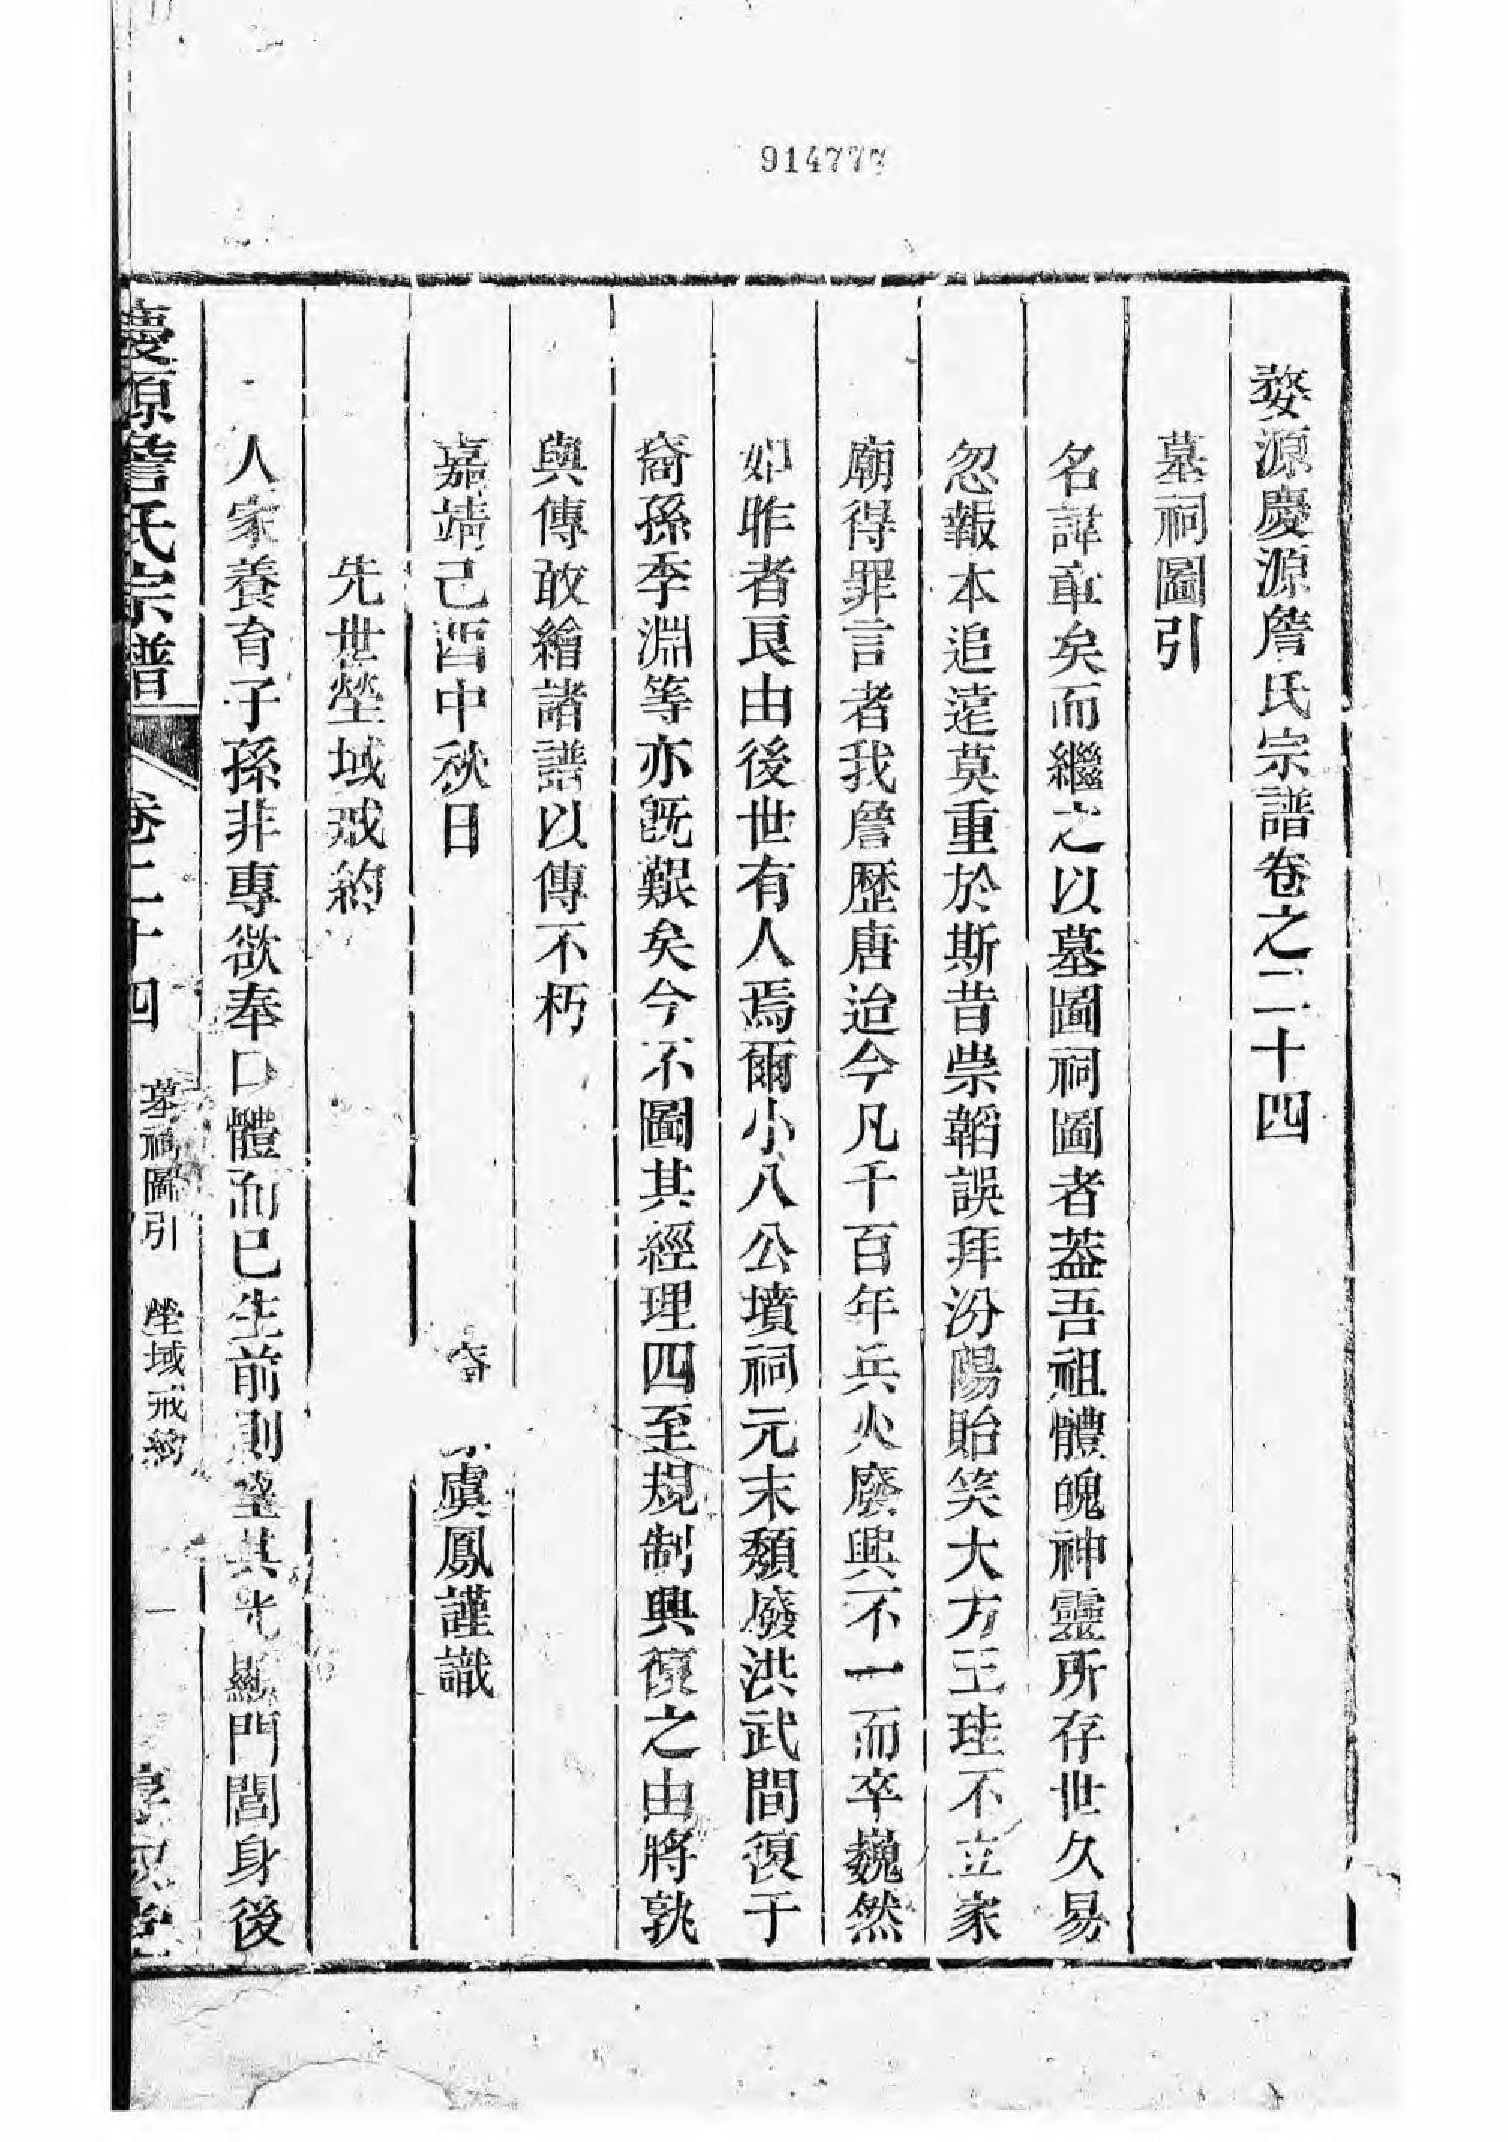 914777
婺源慶源詹氏宗譜卷之二十四
墓祠圖引
名諱章矣而繼之以墓圖祠圖者葢吾祖體魄神靈所存世久易
忽報本追遠莫重於斯昔崇韜誤拜汾陽貽笑大方王珪不立家
廟得罪言者我詹歷唐迨今凡千百年兵火廢興不一而卒巍然
如昨者良由後世有人焉爾小八公墳祠元末頹廢洪武間復于
裔孫季淵等亦旣艱矣今不圖其經理四至規制興復之由將孰
與傳敢繪諸譜以傳不朽
嘉靖己酉中秋日 裔 虞鳳謹識
先世塋域戒約
人家養育子孫非專欲奉口體而已生前則望其光顯門閭身後
慶源詹氏宗譜 卷二十四 墓祠圖引 塋域戒約 一